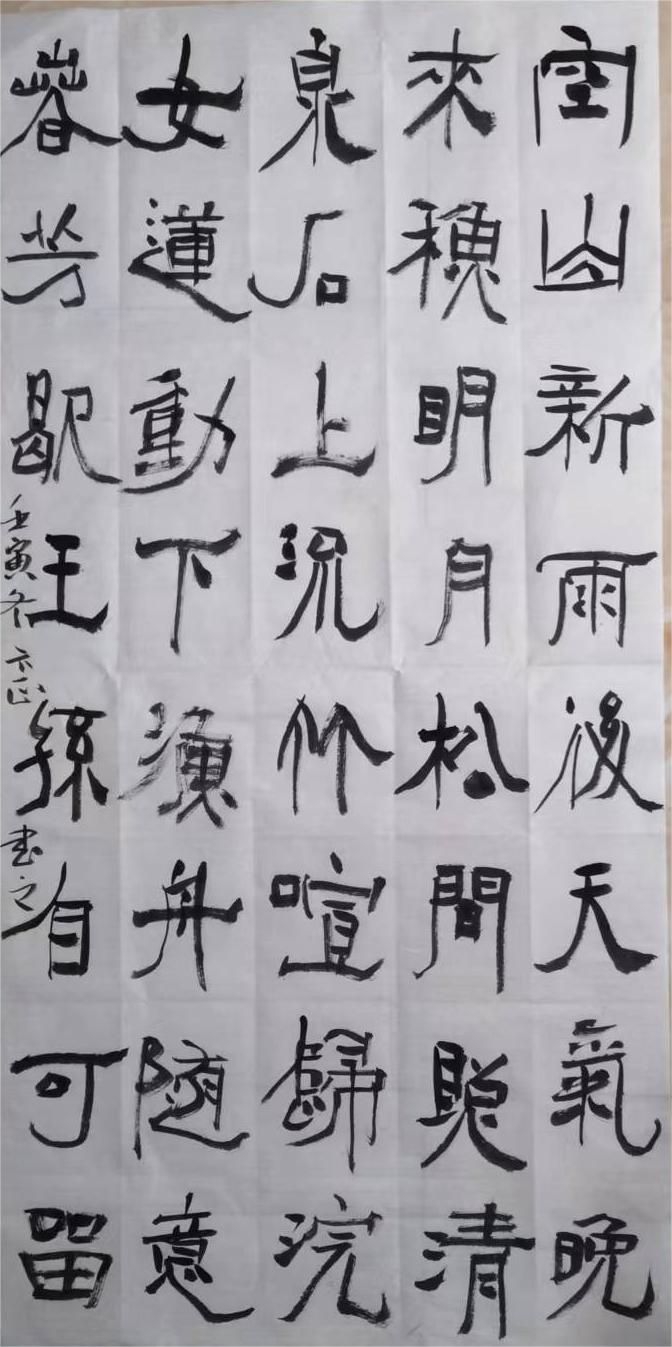 空山新雨後天氣晚
來秋明月松間照清
泉石上流竹喧歸浣
女蓮動下漁舟隨意
春芳歇王孫自可留
壬寅冬書之